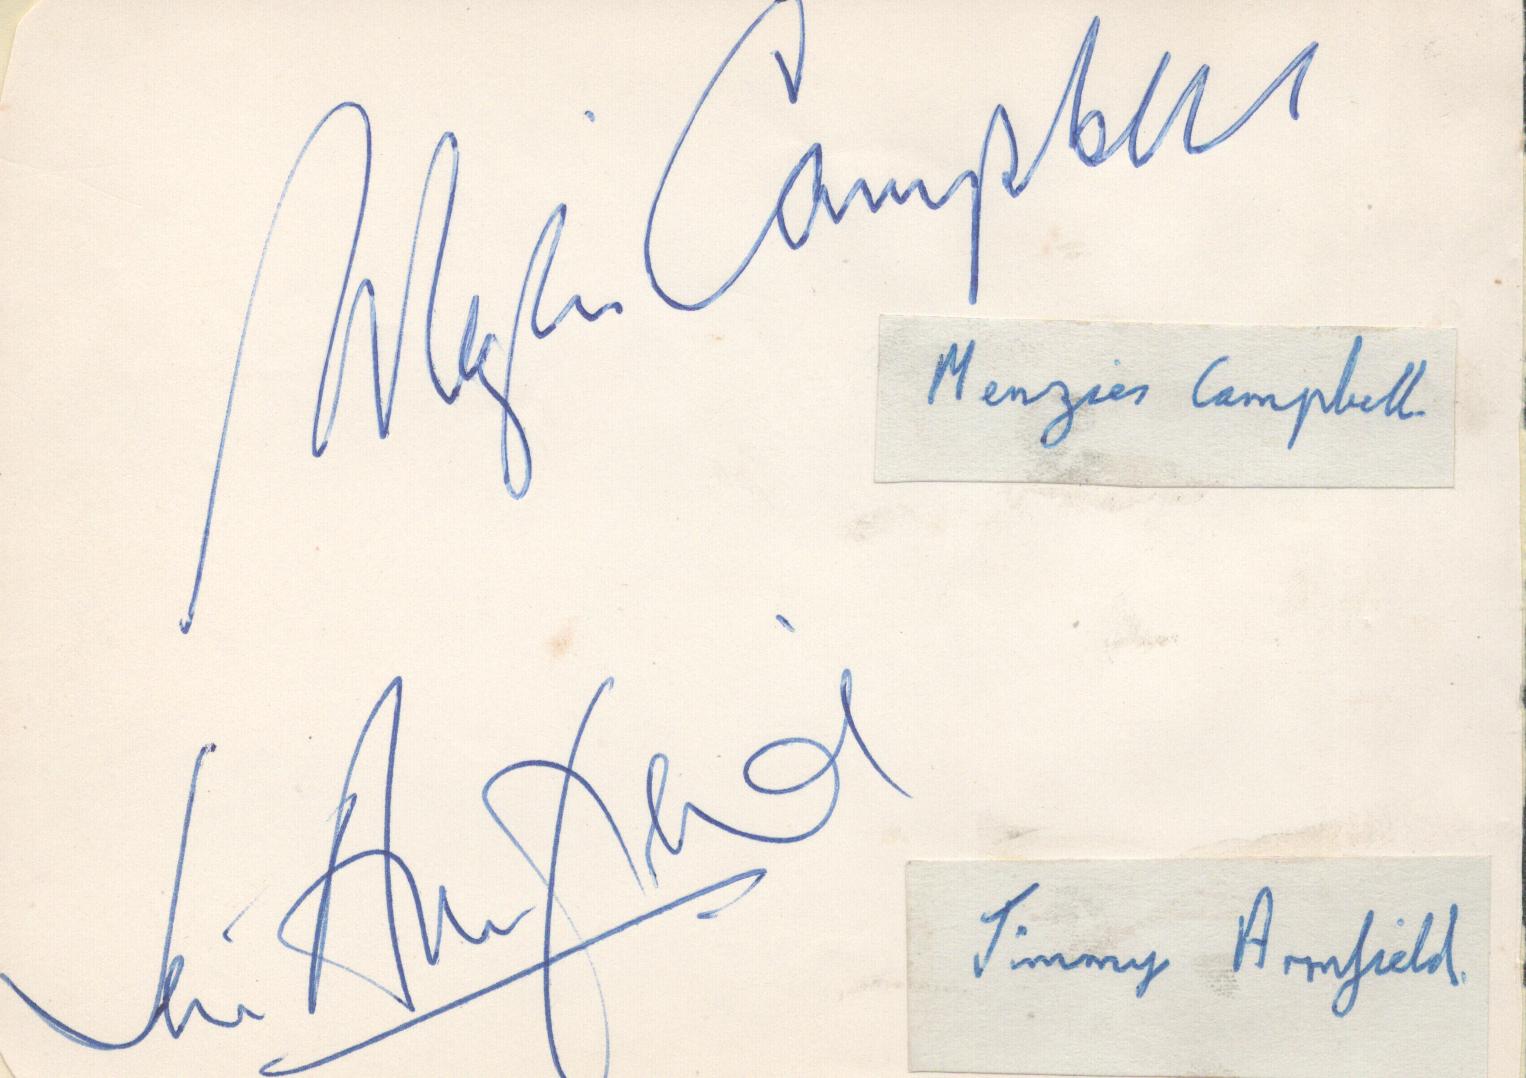 Menzies Campbell
Menzies Campbell.
Jim Armfield
Jimmy Armfield.